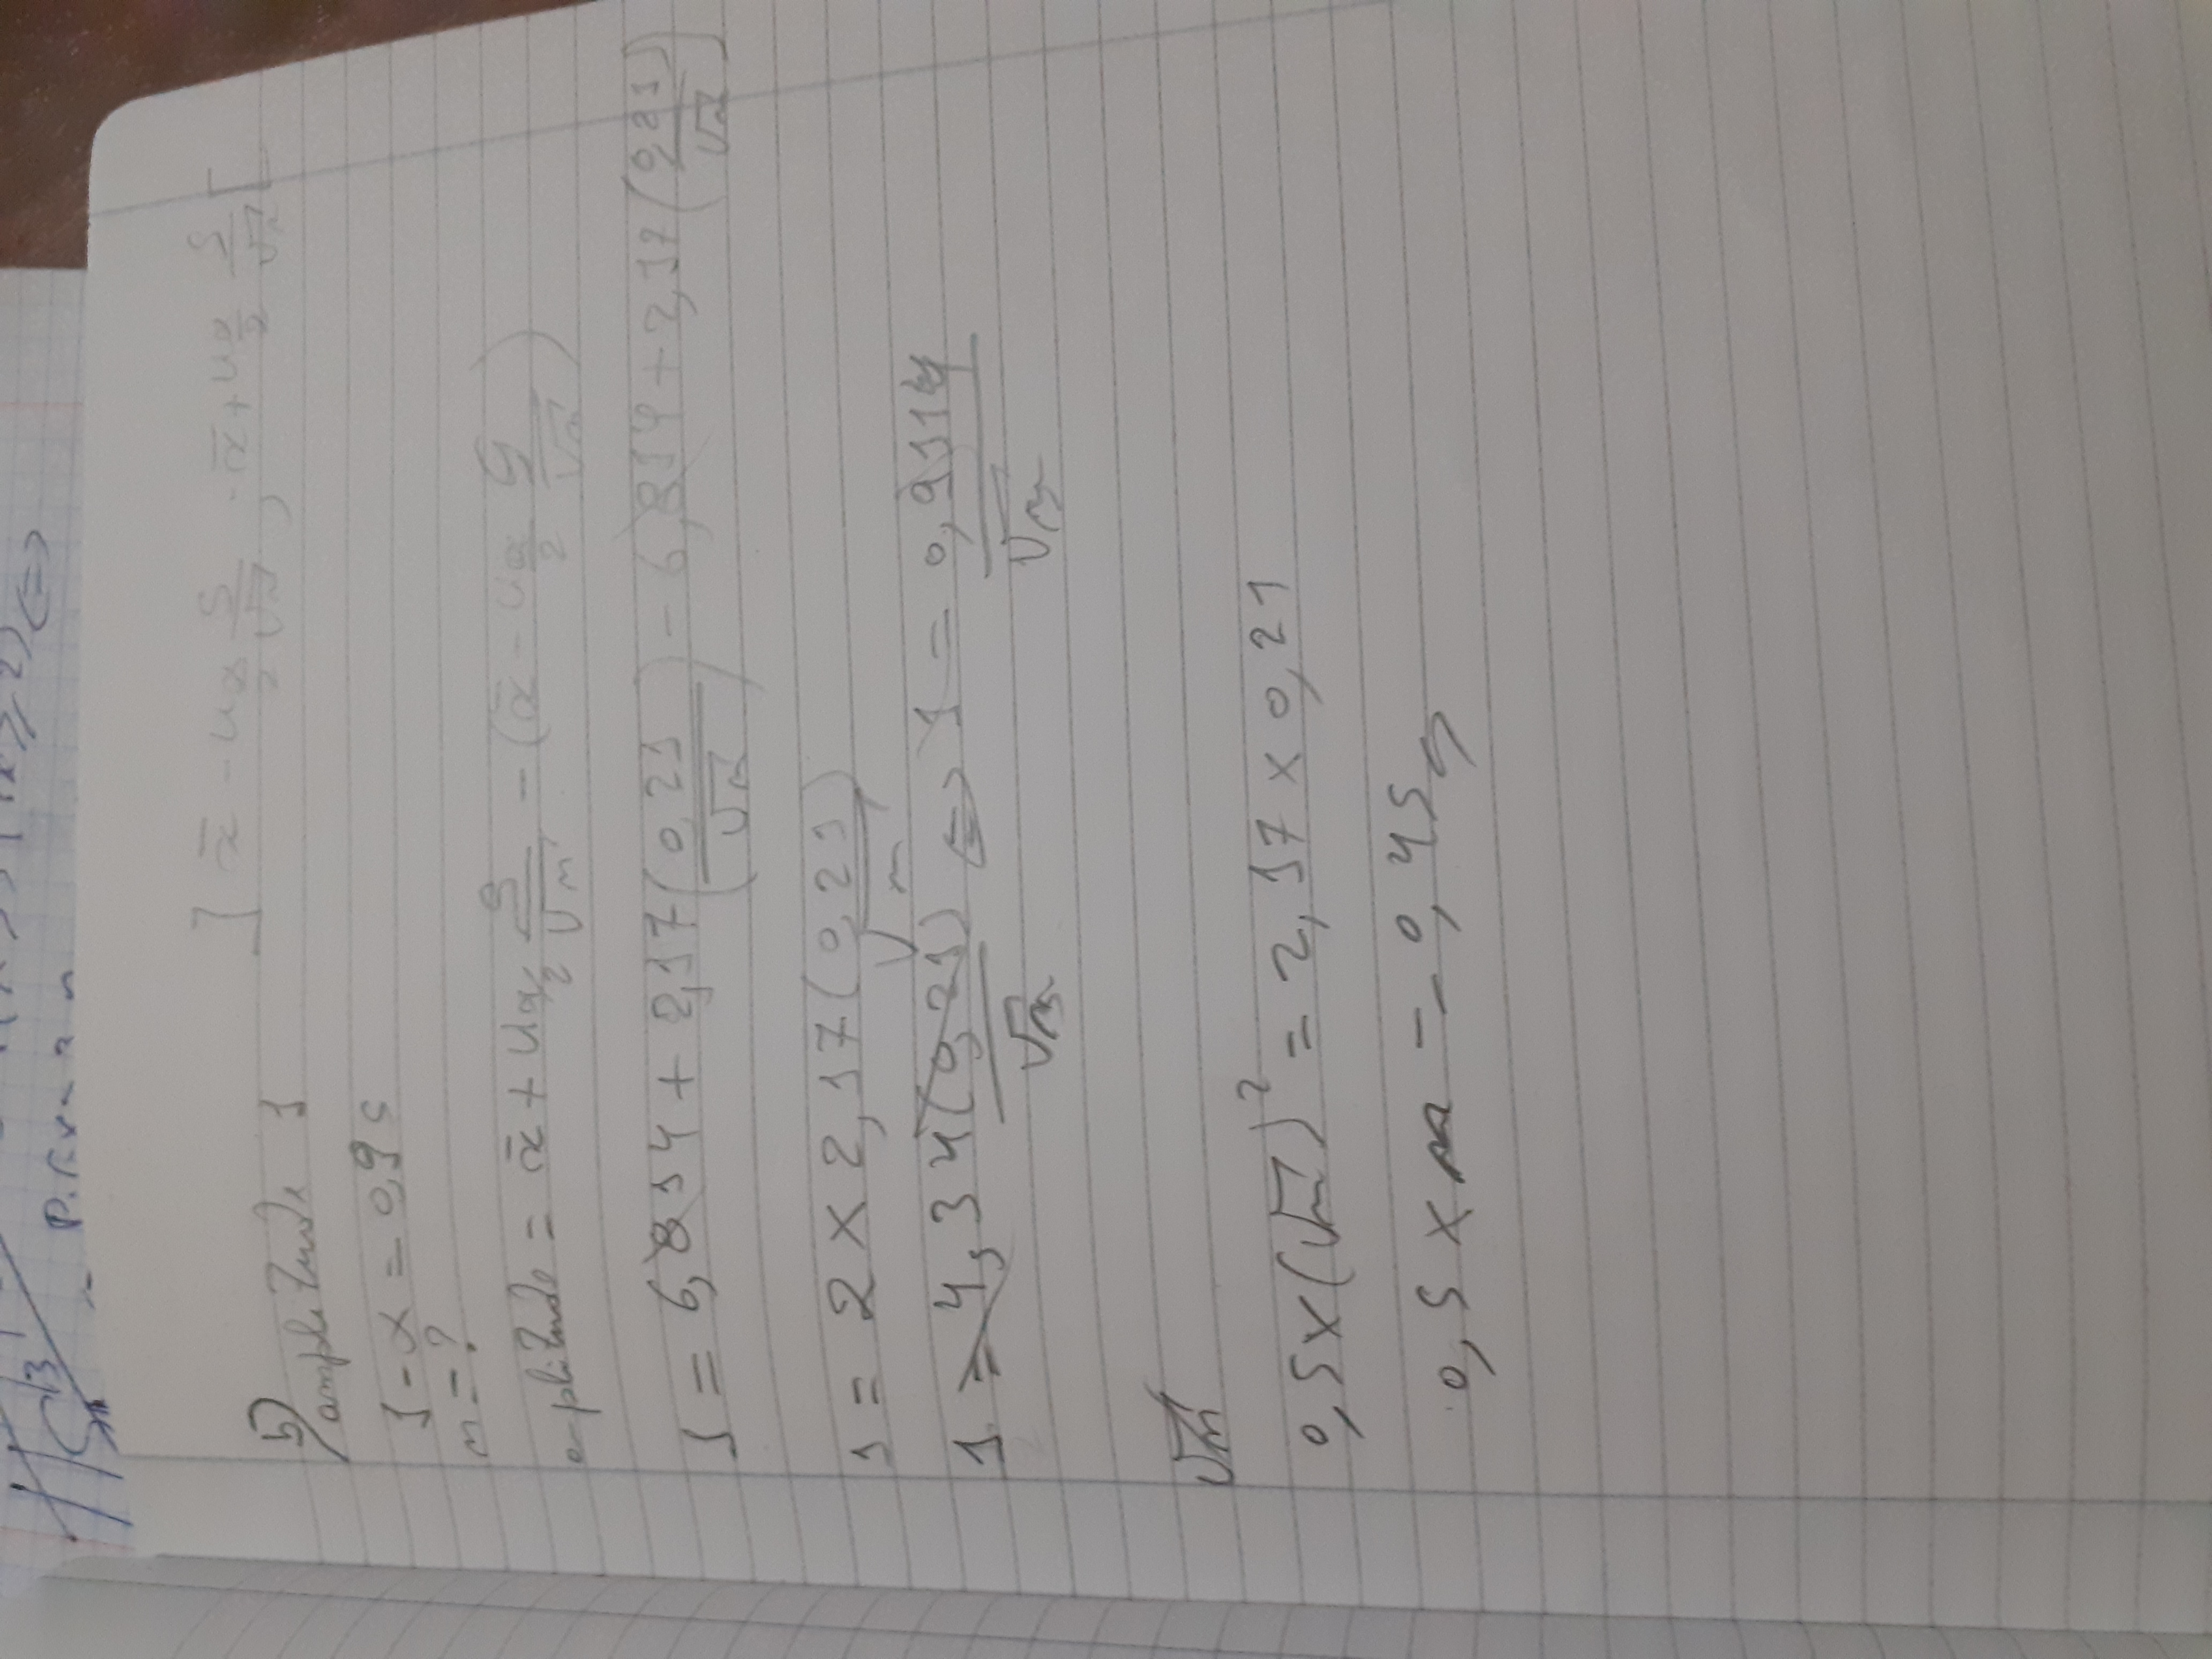 ] x̄ - u α/2 S/√n ; x̄ + u α/2 S/√n [
b) amplitude 1
1 - α = 0,95
n = ?
amplitude = x̄ + u α/2 S/√n - (x̄ - u α/2 S/√n)
1 = 6,814 + 2,17 (0,21/√n) - 6,814 + 2,17 (0,21/√n)
1 = 2 × 2,17 (0,21)/√n
1 = 4,34 (0,21)/√n ⇔ 1 = 0,9114/√n
√n
0,5 × (√n)² = 2,17 × 0,21
0,5 × n = 0,45